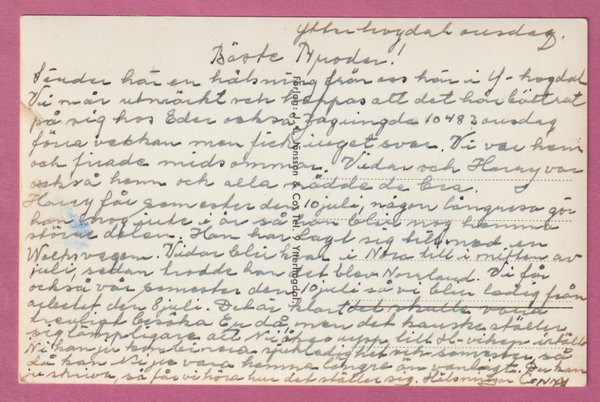 Ytterhogdal onsdag.
Bäste Broder!
Sänder här en hälsning från oss här i Y-hogdal
Vi mår utmärkt och hoppas att det har bättrat
på sig hos Eder också. Jag ringde 10483 onsdag
förra veckan men fick inget svar. Vi var hem
och firade midsommar. Vidar och Harry var
också hemma och alla mådde de bra.
Harry får semester den 10 juli, någon långresa gör
han nog inte i år så han blir nog hemma
större delen. Han har lagt sig till med en
Vidar blir kvar i Nora till i mitten av
juli, sedan trodde han det blev Norrland. Vi får
också vår semester den 10 juli så vi blir lediga från
arbetet den 8 juli. Det är klart det skulle vara
trevligt besöka Er då men det kanske ställer
sig lämpligare att Ni åker upp till H-viken istället
Ni kan ju kombinera sjukledighet och semester, så
då kan Ni ju vara hemma längre än vanligt. Du kan
ju skriva, så får vi höra hur det ställer sig. Hälsningar Conny
Förlag: J. A. Jonsson & Co. Tel. 9 Ytterhogdal